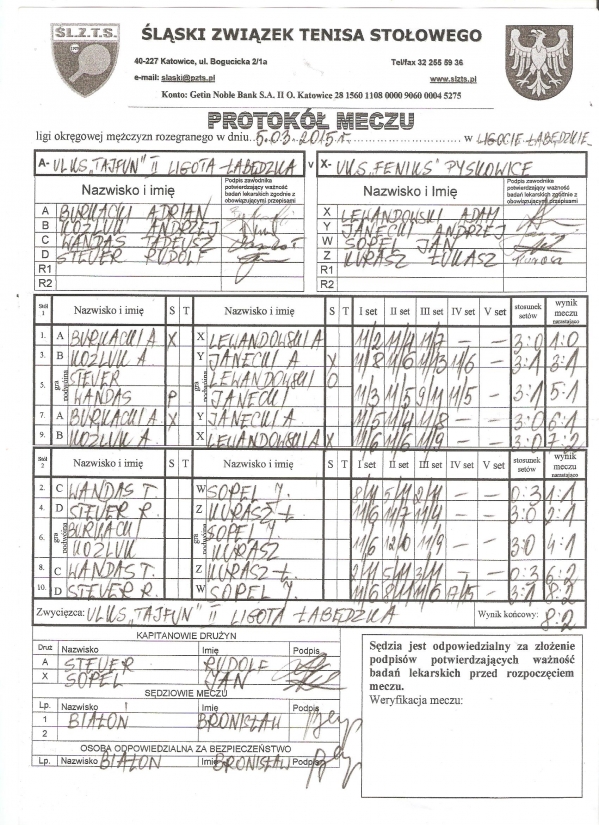 ŚL.Z.T.S.
ŚLĄSKI ZWIĄZEK TENISA STOŁOWEGO
40-227 Katowice, ul. Bogucicka 2/1a Tel/fax 32 255 59 36
e-mail: slaski@pzts.pl www.slzts.pl
Konto: Getin Noble Bank S.A. II O. Katowice 28 1560 1108 0000 9060 0004 5275
PROTOKÓŁ MECZU
ligi okręgowej mężczyzn rozegranego w dniu 5.03.2015 r. w LIGOCIE ŁABĘDZKIE
A- ULKS „TAJFUN" II LIGOTA ŁABĘDZKA v X- UKS „FENIKS" PYSKOWICE
Nazwisko i imię Podpis zawodnika potwierdzający ważność badań lekarskich zgodnie z obowiązującymi przepisami Nazwisko i imię Podpis zawodnika potwierdzający ważność badań lekarskich zgodnie z obowiązującymi przepisami
A BURKACKI ADRIAN X LEWANDOWSKI ADAM
B KOZLUK ANDRZEJ Y JANECKI ANDRZEJ
C WANDAS TADEUSZ W SOPEL JAN
D STEUER RUDOLF Z KURASZ ŁUKASZ
R1 R1
R2 R2
Stół 1 Nazwisko i imię S T Nazwisko i imię S T I set II set III set IV set V set stosunek setów wynik meczu narastająco
1. A BURKACKI A X X LEWANDOWSKI A 11/2 11/4 11/7 – – 3:0 1:0
3. B KOZLUK A Y JANECKI A Y 11/8 11/6 11/13 11/6 – 3:1 3:1
5. gra podwójna STEUER WANDAS P gra podwójna LEWANDOWSKI JANECKI O 11/3 11/5 9/11 11/5 – 3:1 5:1
7. A BURKACKI A X Y JANECKI A. 11/5 11/4 11/8 – – 3:0 6:1
9. B KOZLUK A. X LEWANDOWSKI A X 11/6 11/6 11/9 – – 3:0 7:2
Stół 2 Nazwisko i imię S T Nazwisko i imię S T I set II set III set IV set V set stosunek setów wynik meczu narastająco
2. C WANDAS T. W SOPEL J. 8/11 5/11 2/11 – – 0:3 1:1
4. D STEUER R. Z KURASZ Ł 11/6 11/7 11/4 – – 3:0 2:1
6. gra podwójna BURKACKI KOZLUK gra podwójna SOPEL J. KURASZ 11/6 12/10 11/9 – – 3:0 4:1
8. C WANDAS T. Z KURASZ Ł. 2/11 5/11 3/11 – – 0:3 6:2
10. D STEUER R. W SOPEL J. 11/6 8/11 11/6 17/15 – 3:1 8:2
Zwycięzca: ULKS „TAJFUN" II LIGOTA ŁABĘDZKA Wynik końcowy: 8:2
KAPITANOWIE DRUŻYN
Druż Nazwisko Imię Podpis
A STEUER RUDOLF
X SOPEL JAN
SĘDZIOWIE MECZU
Lp. Nazwisko Imię Podpis
1 BIAŁON BRONISŁAW
2
OSOBA ODPOWIEDZIALNA ZA BEZPIECZEŃSTWO
Lp. Nazwisko BIAŁON Imię BRONISŁAW Podpis
Sędzia jest odpowiedzialny za złożenie
podpisów potwierdzających ważność
badań lekarskich przed rozpoczęciem
meczu.
Weryfikacja meczu: